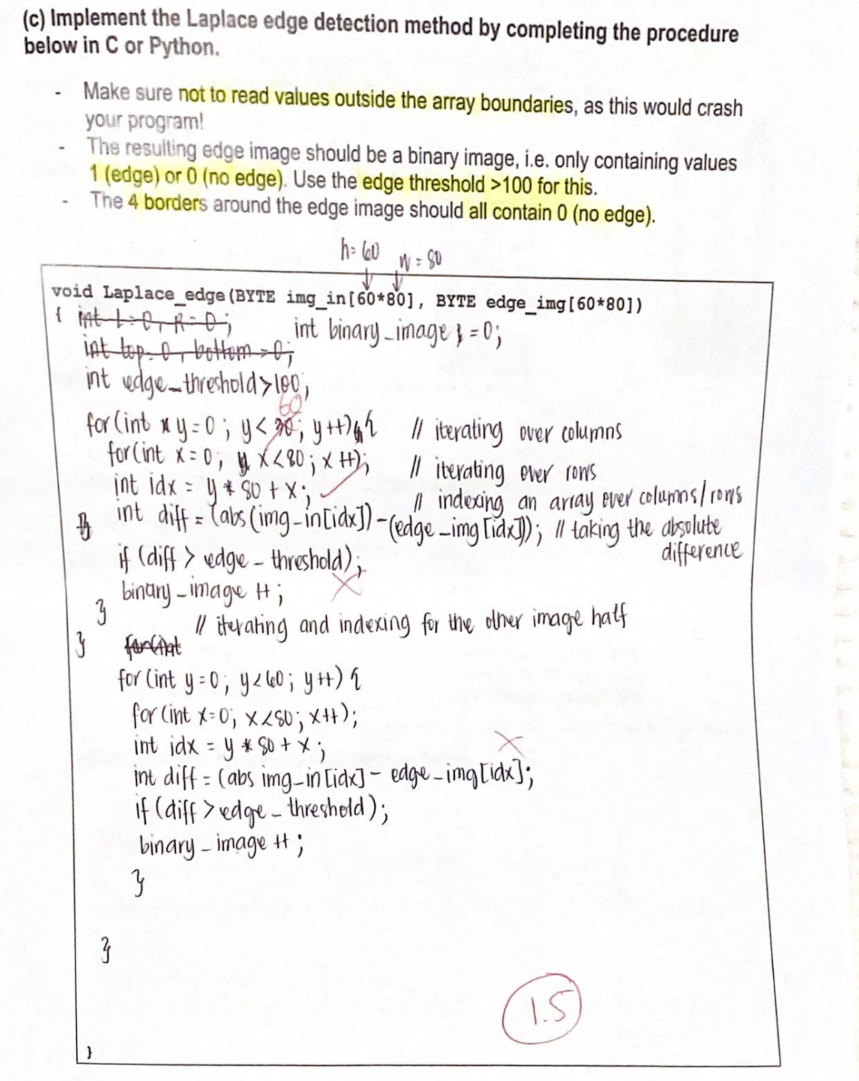 (c) Implement the Laplace edge detection method by completing the procedure
below in C or Python.
- Make sure not to read values outside the array boundaries, as this would crash
your program!
- The resulting edge image should be a binary image, i.e. only containing values
1 (edge) or 0 (no edge). Use the edge threshold >100 for this.
- The 4 borders around the edge image should all contain 0 (no edge).
h=60 w=80
void Laplace_edge(BYTE img_in[60*80], BYTE edge_img[60*80])
{ int L=0, R=0; int binary_image =0;
int top=0, bottom=0;
int edge_threshold>100;
60
for(int y=0; y< ; y++){ // iterating over columns
for(int x=0; x<80; x++); // iterating over rows
int idx = y * 80 + x; // indexing an array over columns/rows
int diff = (abs(img_in[idx])-(edge_img[idx])); // taking the absolute
difference
if (diff > edge_threshold);
binary_image ++;
}
// iterating and indexing for the other image half
} for(int
for(int y=0; y<60; y++) {
for(int x=0; x<80; x++);
int idx = y * 80 + x;
int diff = (abs img_in[idx] - edge_img[idx];
if (diff > edge_threshold);
binary_image ++;
}
}
1.5
}